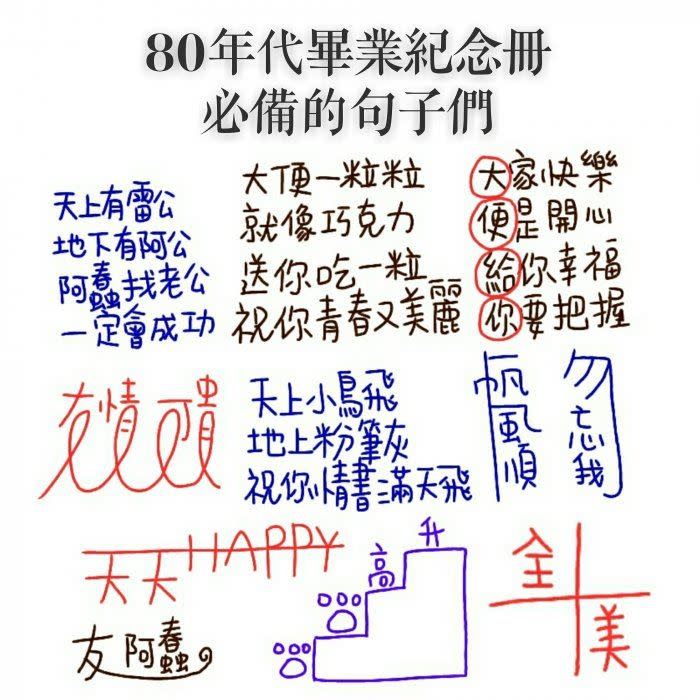 80年代畢業紀念冊
必備的句子們
天上有雷公
地下有阿公
阿蠢找老公
一定會成功
大便一粒粒
就像巧克力
送你吃一粒
祝你青春又美麗
大家快樂
便是開心
給你幸福
你要把握
友情可貴
天上小鳥飛
地上粉筆灰
祝你情書滿天飛
帆風順
勿忘我
天天HAPPY
友 阿蠢
高升
全
美